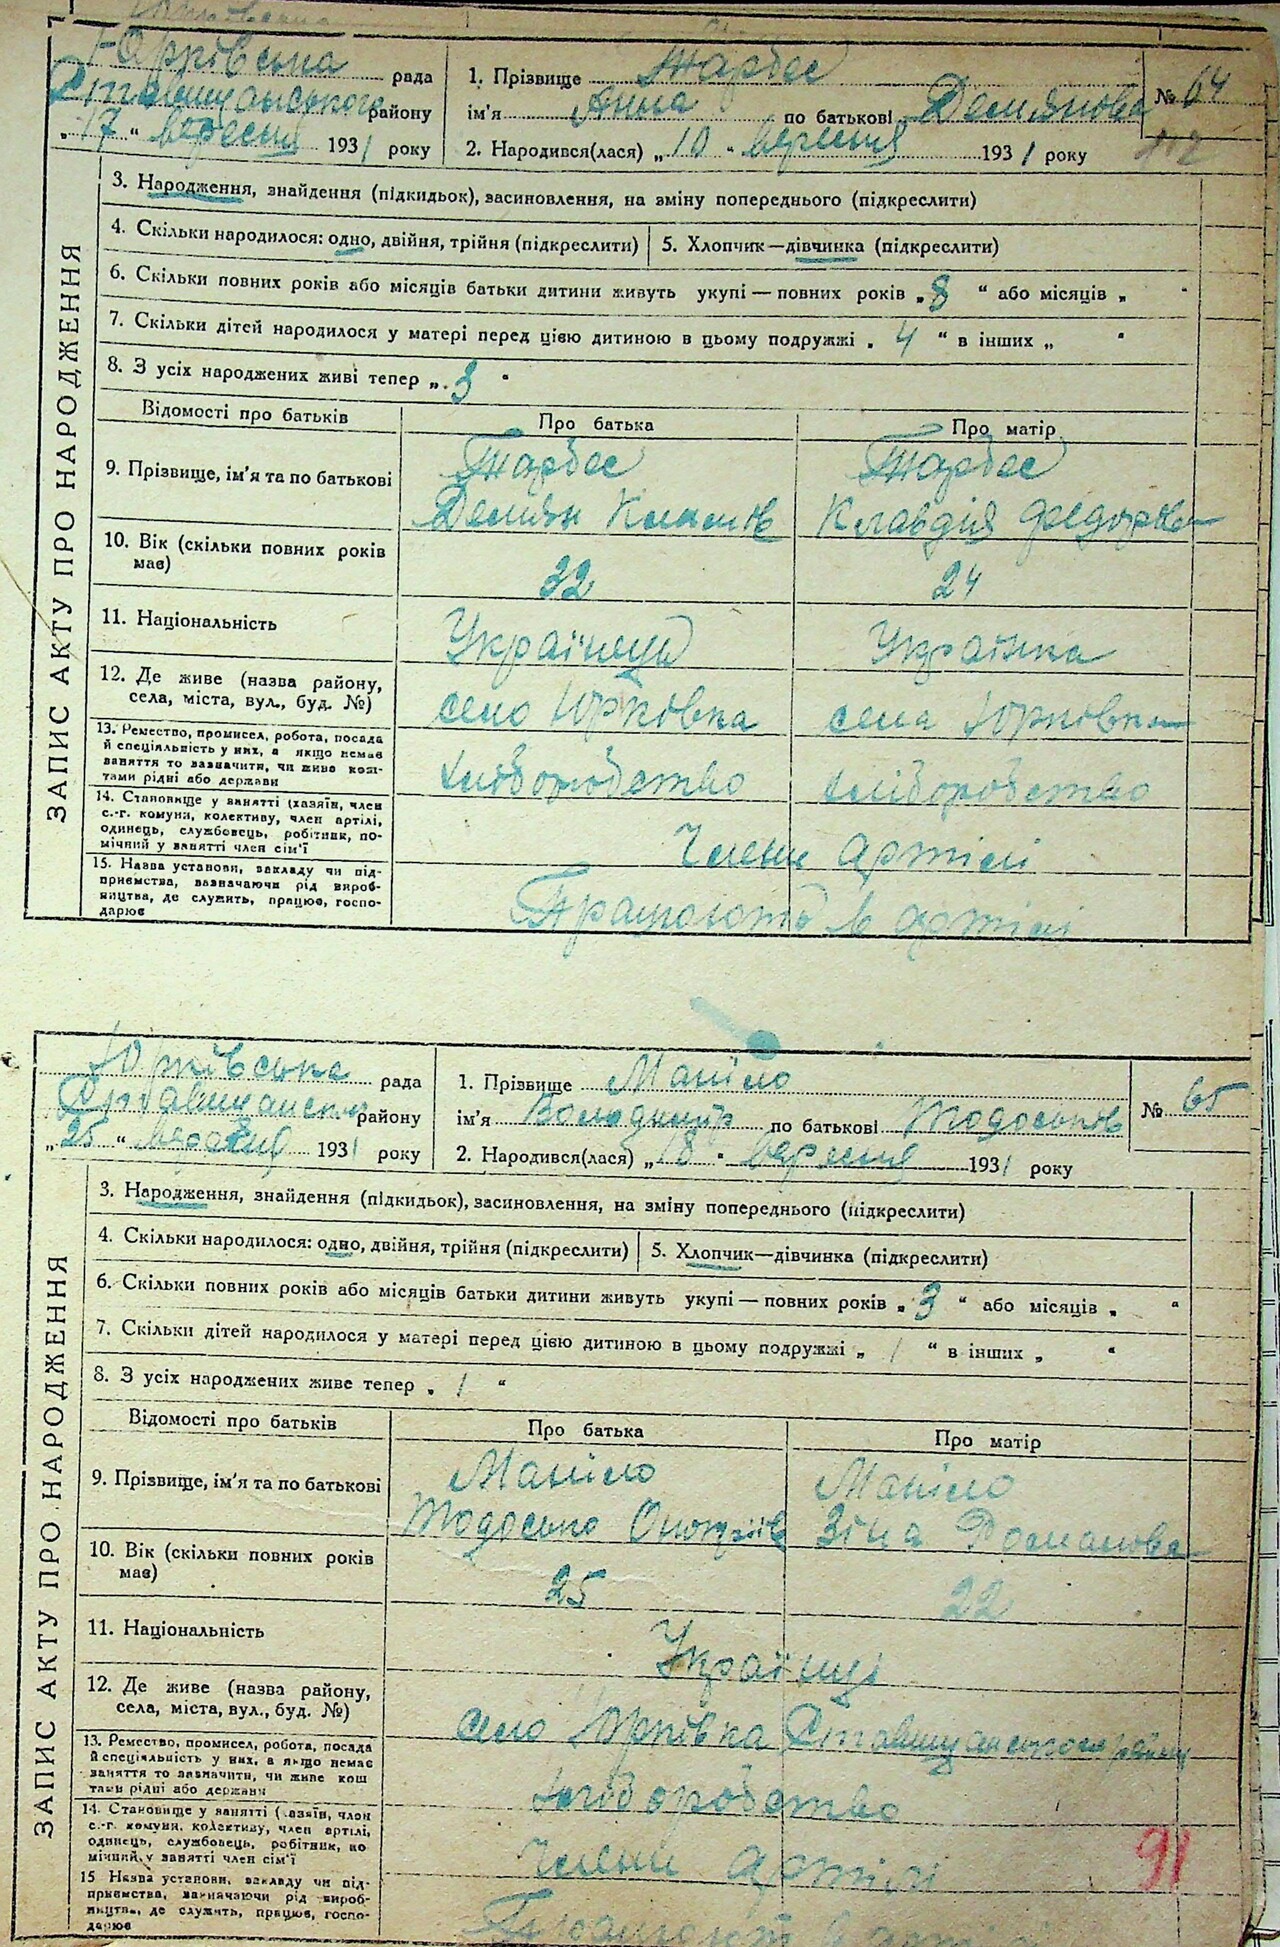 Юрківська рада
Ставищанського району
„17“ вересня 1931 року
1. Прізвище Тарбес
№ 64
ім'я Анна по батькові Демянова
2. Народився(лася) „10“ вересня 1931 року
3. Народження, знайдення (підкидьок), засиновлення, на зміну попереднього (підкреслити)
4. Скільки народилося: одно, двійня, трійня (підкреслити)
5. Хлопчик—дівчинка (підкреслити)
6. Скільки повних років або місяців батьки дитини живуть укупі — повних років „8“ або місяців „ “
7. Скільки дітей народилося у матері перед цією дитиною в цьому подружжі „4“ в інших „ “
8. З усіх народжених живі тепер „3“
Відомості про батьків
Про батька
Про матір
9. Прізвище, ім'я та по батькові
Тарбес
Тарбес
Демян
Клавдія Федорів
10. Вік (скільки повних років має)
32
24
11. Національність
Українець
Українка
12. Де живе (назва району, села, міста, вул., буд. №)
село Юрківка
села Юрківка
13. Ремество, промисел, робота, посада й спеціяльність у них, а якщо немає заняття то зазначити, чи живе коштами рідні або держави
хліборобство
хліборобство
14. Становище у занятті (хазяїн, член с.-г. комуни, колективу, член артілі, одинець, службовець, робітник, помічний у занятті член сім'ї
Члени артілі
15. Назва установи, закладу чи підприємства, зазначаючи рід виробництва, де служить, працює, господарює
Працюють в артілі
ЗАПИС АКТУ ПРО НАРОДЖЕННЯ
Юрківська рада
Ставищанського району
„25“ вересня 1931 року
1. Прізвище Маніло
№ 65
ім'я Володимир по батькові Тодоськів
2. Народився(лася) „18“ вересня 1931 року
3. Народження, знайдення (підкидьок), засиновлення, на зміну попереднього (підкреслити)
4. Скільки народилося: одно, двійня, трійня (підкреслити)
5. Хлопчик—дівчинка (підкреслити)
6. Скільки повних років або місяців батьки дитини живуть укупі — повних років „3“ або місяців „ “
7. Скільки дітей народилося у матері перед цією дитиною в цьому подружжі „1“ в інших „ “
8. З усіх народжених живе тепер „1“
Відомості про батьків
Про батька
Про матір
9. Прізвище, ім'я та по батькові
Маніло
Маніло
Тодосько
Зіна Романова
10. Вік (скільки повних років має)
25
22
11. Національність
Українці
12. Де живе (назва району, села, міста, вул., буд. №)
село Юрківка Ставищанського району
13. Ремество, промисел, робота, посада й спеціяльність у них, а якщо немає заняття то зазначити, чи живе коштами рідні або держави
хліборобство
14. Становище у занятті (хазяїн, член с.-г. комуни, колективу, член артілі, одинець, службовець, робітник, помічний у занятті член сім'ї
Члени артілі
15 Назва установи, закладу чи підприємства, зазначаючи рід виробництва, де служить, працює, господарює
Працюють в артілі
ЗАПИС АКТУ ПРО НАРОДЖЕННЯ
91